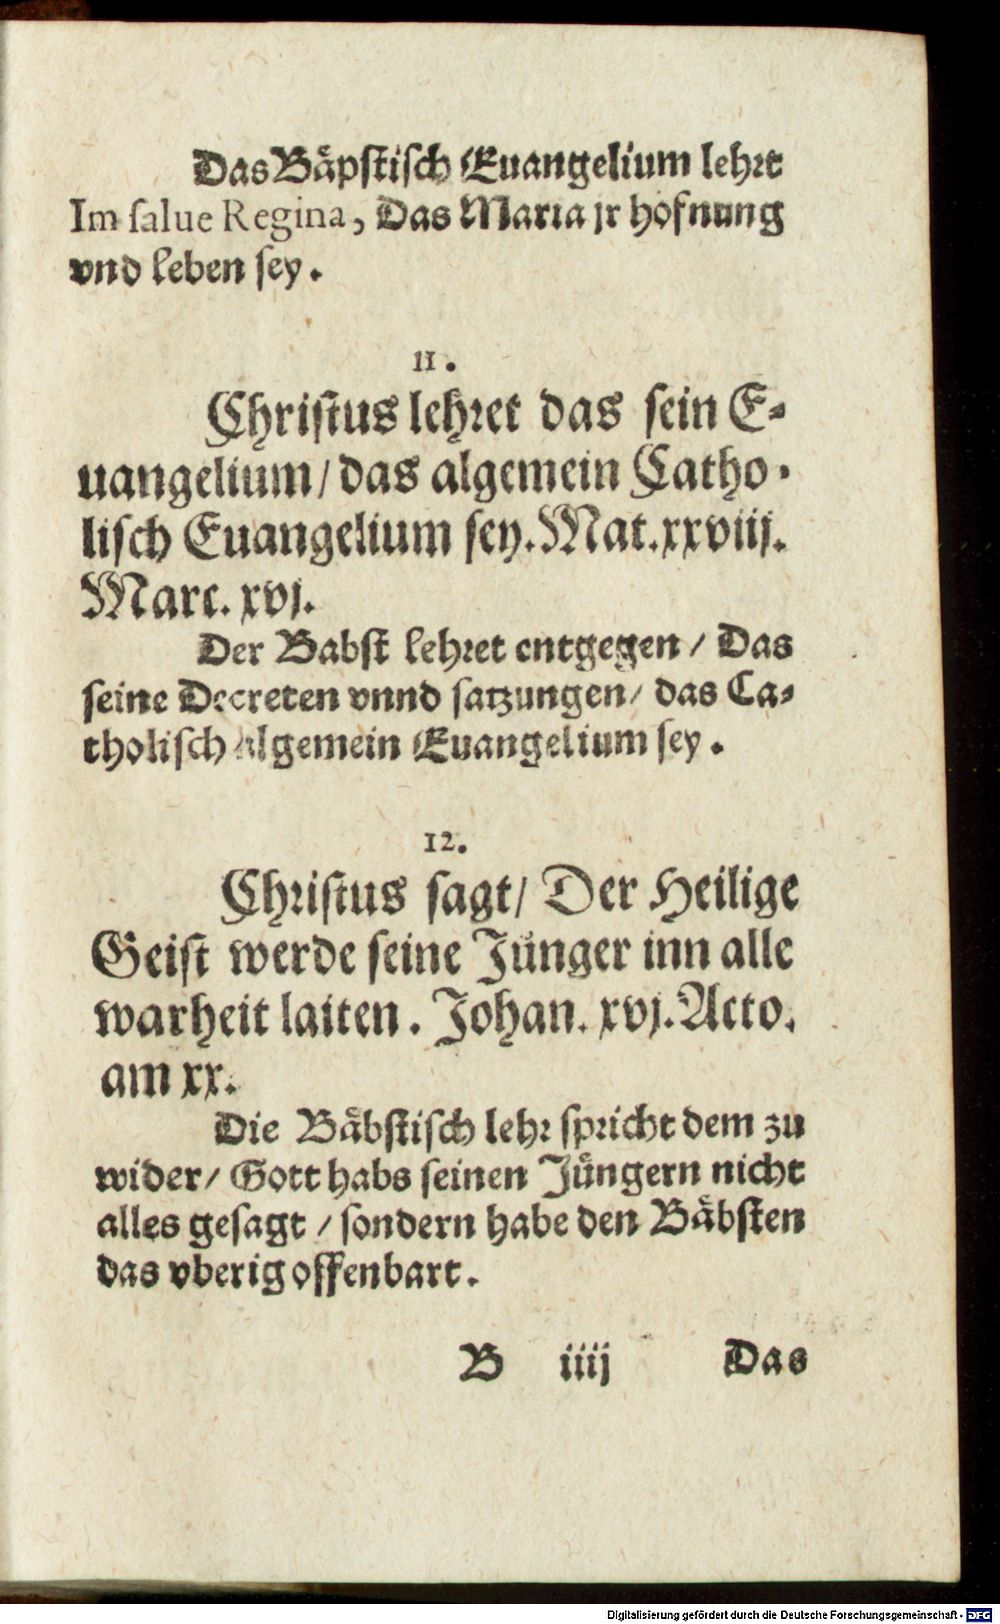 Das Bäpstisch Euangelium lehrt
Im salue Regina, Das Maria jr hofnung
vnd leben sey.
11.
Christus lehret das sein E-
uangelium/ das algemein Catho-
lisch Euangelium sey. Mat. xxviij.
Marc. xvj.
Der Babst lehret entgegen / Das
seine Decreten vnnd satzungen/ das Ca-
tholisch algemein Euangelium sey.
12.
Christus sagt/ Der Heilige
Geist werde seine Jünger inn alle
warheit laiten. Johan. xvj. Acto.
am xx.
Die Bäbstisch lehr spricht dem zu
wider/ Gott habs seinen Jüngern nicht
alles gesagt / sondern habe den Bäbsten
das vberig offenbart.
B iiij Das
Digitalisierung gefördert durch die Deutsche Forschungsgemeinschaft - DFG